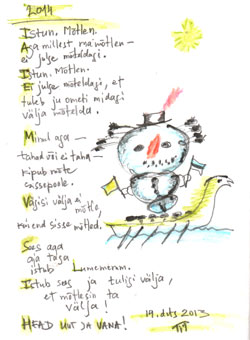 2014
Istun. Mõtlen.
Aga millest ma mõtlen –
ei julge mõteldagi.
Istun. Mõtlen.
Ei julge mõteldagi, et
tuleb ju ometi midagi
välja mõtelda.
Minul aga –
tahad või ei taha –
kipub mõte
sissepoole.
Vägisi välja ei
mõtle,
kui end sisse mõtled,
Sees aga
aja taga
istub Lumememm.
Istub sees ja tuligi välja,
et mõtlesin ta
välja!
Head uut ja vana!
19. dets 2013